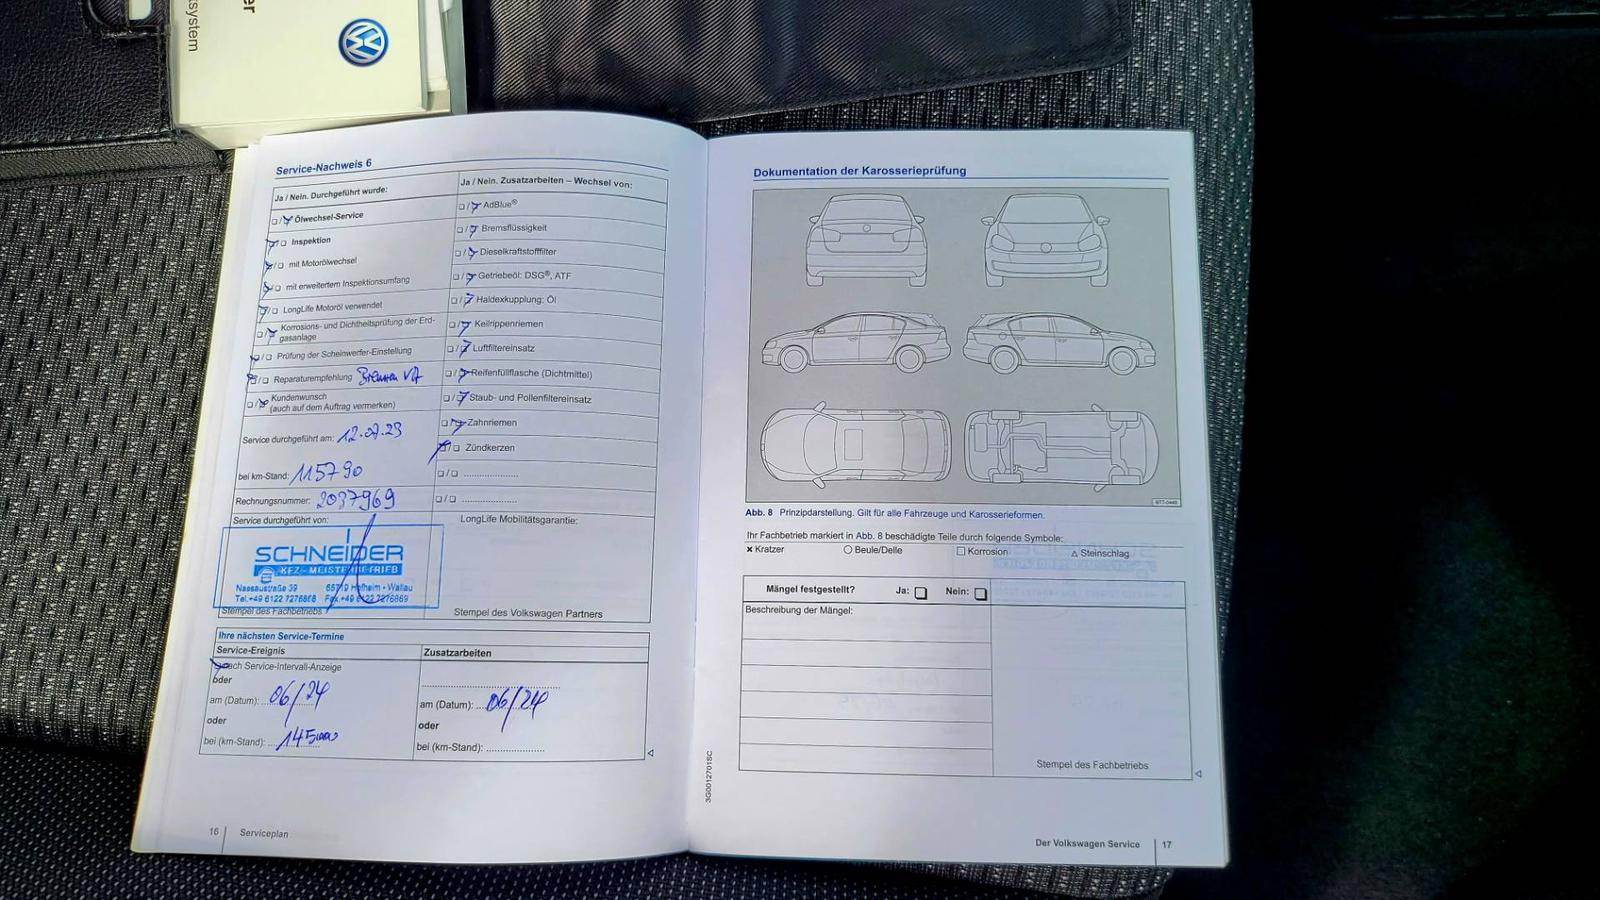 er
ksystem
Service-Nachweis 6
Ja / Nein. Durchgeführt wurde:
Ja / Nein. Zusatzarbeiten – Wechsel von:
Ölwechsel-Service
Inspektion
mit Motorölwechsel
mit erweitertem Inspektionsumfang
LongLife Motoröl verwendet
Korrosions- und Dichtheitsprüfung der Erd-
gasanlage
Prüfung der Scheinwerfer-Einstellung
Reparaturempfehlung Bremsen VA
Kundenwunsch
(auch auf dem Auftrag vermerken)
Service durchgeführt am: 12.07.23
bei km-Stand: 115790
Rechnungsnummer: 2037969
Service durchgeführt von:
SCHNEIDER
KFZ - MEISTERBETRIEB
Nassaustraße 39 65719 Hofheim - Wallau
Tel.+49 6122 7276868 Fax.+49 6122 7276869
Stempel des Fachbetriebs
AdBlue®
Bremsflüssigkeit
Dieselkraftstofffilter
Getriebeöl: DSG®, ATF
Haldexkupplung: Öl
Keilrippenriemen
Luftfiltereinsatz
Reifenfüllflasche (Dichtmittel)
Staub- und Pollenfiltereinsatz
Zahnriemen
Zündkerzen
LongLife Mobilitätsgarantie:
Stempel des Volkswagen Partners
Ihre nächsten Service-Termine
Service-Ereignis
nach Service-Intervall-Anzeige
oder
am (Datum): 06/24
oder
bei (km-Stand): 145000
Zusatzarbeiten
am (Datum): 06/24
oder
bei (km-Stand):
16 Serviceplan
Dokumentation der Karosserieprüfung
BTT-0448
Abb. 8 Prinzipdarstellung. Gilt für alle Fahrzeuge und Karosserieformen.
Ihr Fachbetrieb markiert in Abb. 8 beschädigte Teile durch folgende Symbole:
Kratzer Beule/Delle Korrosion Steinschlag
Mängel festgestellt? Ja: Nein:
Beschreibung der Mängel:
Stempel des Fachbetriebs
3G0012701SC
Der Volkswagen Service 17